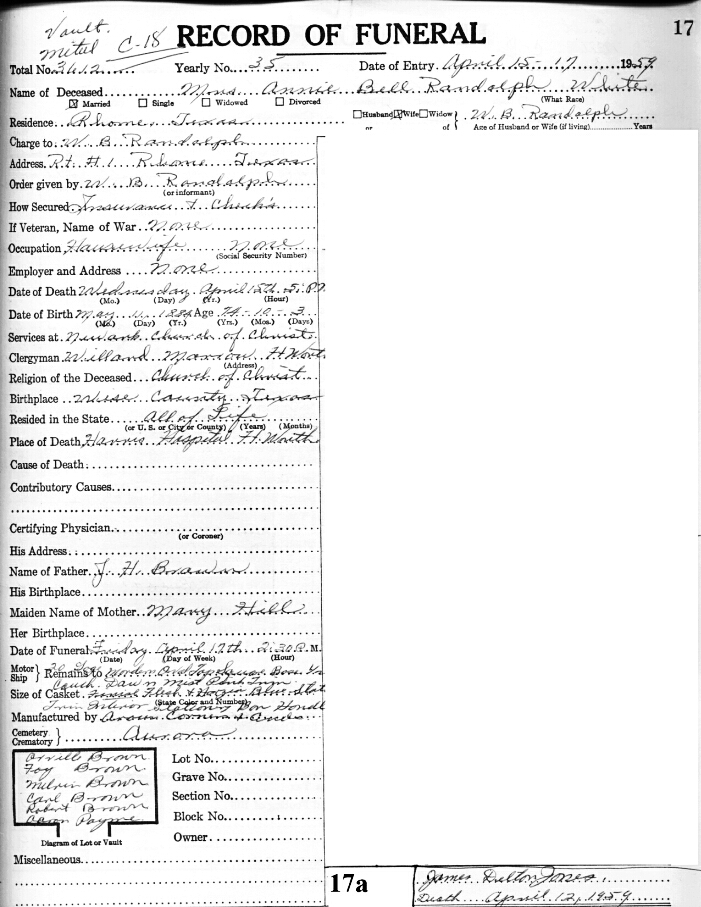 Vault.
metal C-18
RECORD OF FUNERAL
17
Total No. 3612 Yearly No. 35 Date of Entry April 15-17 1959
Name of Deceased Mrs. Annie Bell Randolph White
Married Single Widowed Divorced (What Race)
Residence Rhome, Texas Husband Wife Widow of W. B. Randolph
or Age of Husband or Wife (if living) Years
Charge to W. B. Randolph
Address Rt. #1 Rhome Texas
Order given by W. B. Randolph
(or informant)
How Secured Insurance + Check's
If Veteran, Name of War None
Occupation Housewife None
(Social Security Number)
Employer and Address None
Date of Death Wednesday April 15th 5: P.
(Mo.) (Day) (Yr.) (Hour)
Date of Birth May 11 Age 74 - 10 - 3
(Mo.) (Day) (Yr.) (Yrs.) (Mos.) (Days)
Services at Newark Church of Christ
Clergyman Willand Ft Wort
(Address)
Religion of the Deceased Church of Christ
Birthplace Wise County Texas
Resided in the State All of Life
(or U. S. or City or County) (Years) (Months)
Place of Death Harris Hospital Ft. Worth
Cause of Death
Contributory Causes
Certifying Physician
(or Coroner)
His Address
Name of Father J. H. Brown
His Birthplace
Maiden Name of Mother Mary Hill
Her Birthplace
Date of Funeral Friday April 17th 2:30 P. M.
(Date) (Day of Week) (Hour)
Motor Ship Remains to
Couch Dawn Mist Pink
Size of Casket Blue
(State Color and Number)
Interior
Manufactured by
Cemetery Crematory Aurora
Orvill Brown
Foy Brown
Melvin Brown
Carl Brown
Robert Brown
Payne
Diagram of Lot or Vault
Lot No.
Grave No.
Section No.
Block No.
Owner
Miscellaneous
17a
James Delton Jones
Death April 12, 1959